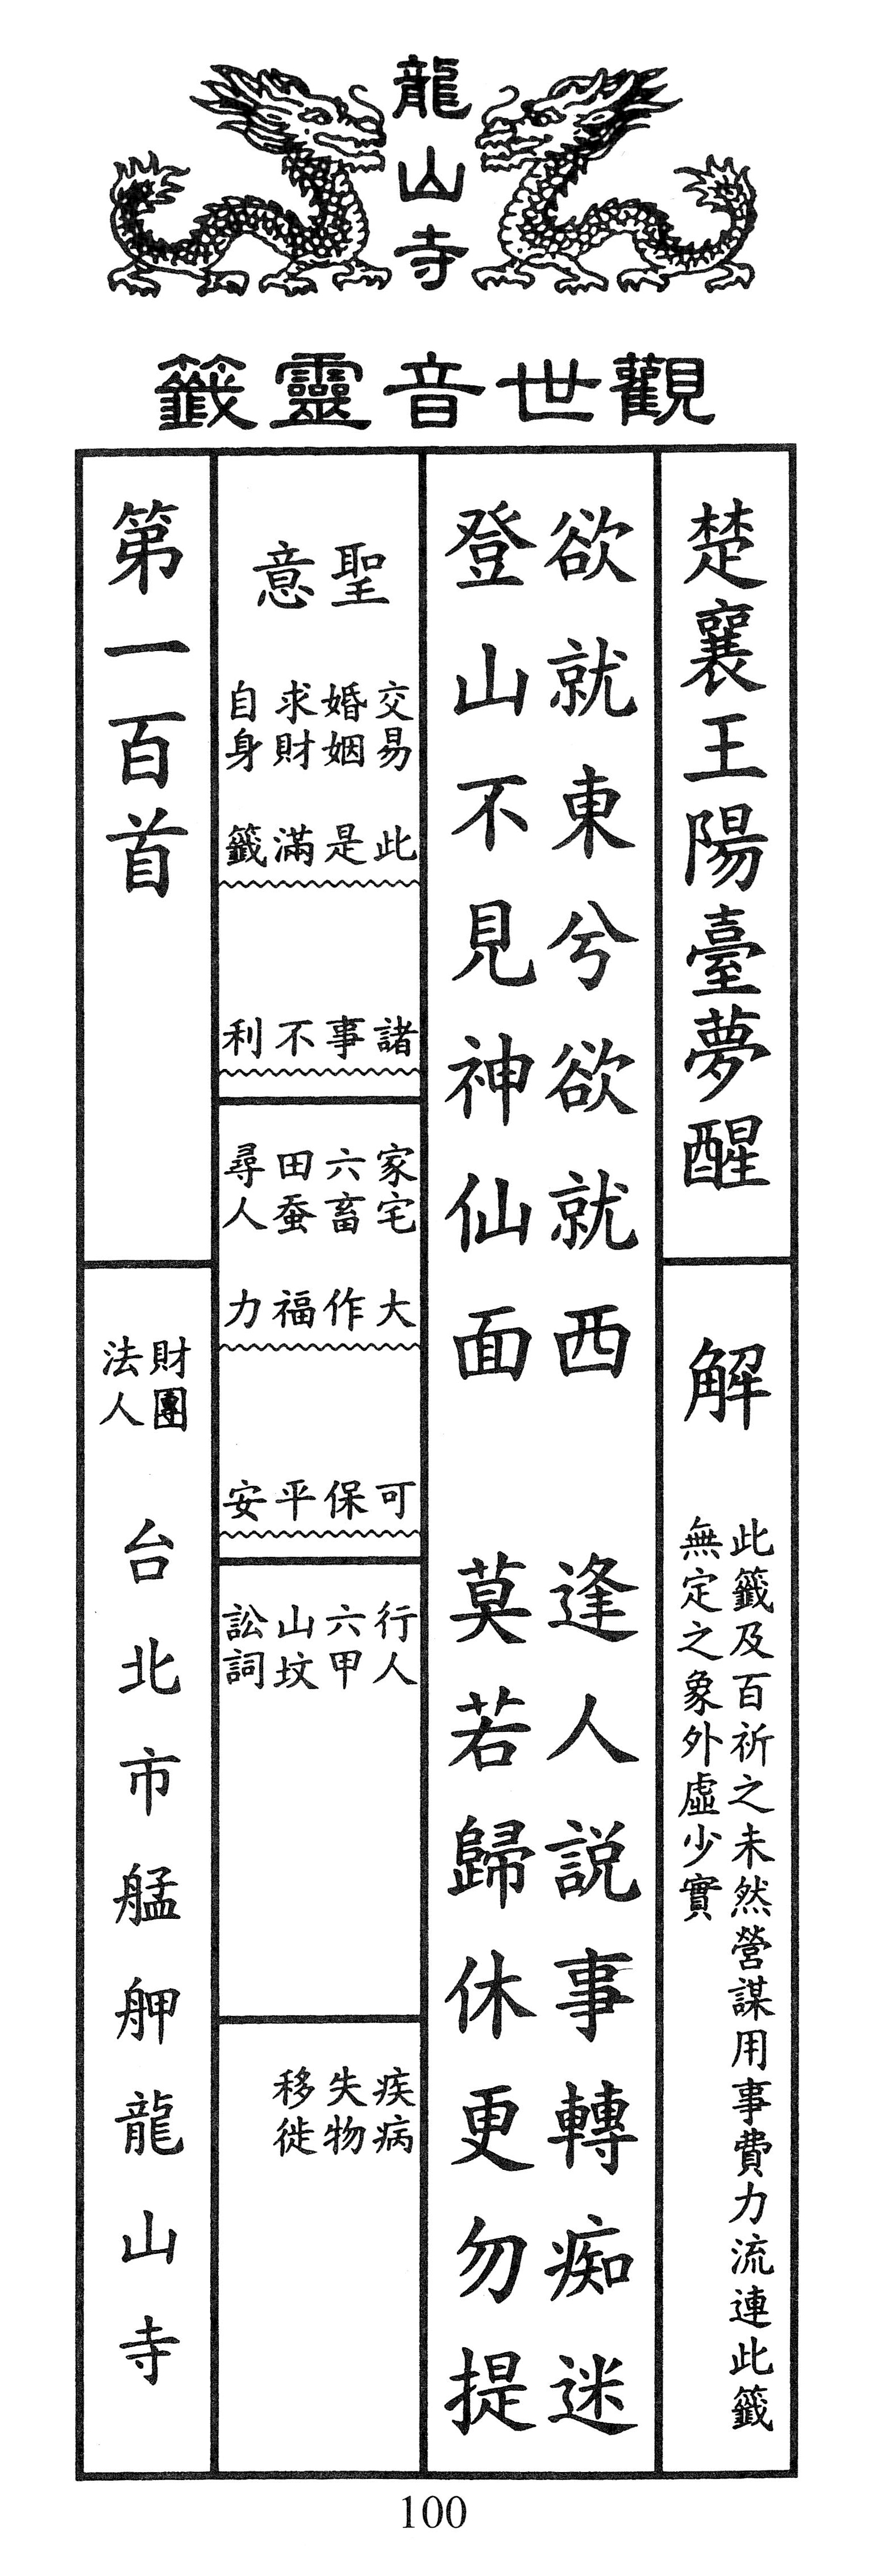 龍山寺
觀世音靈籤
楚襄王陽臺夢醒
解
此籤及百祈之未然營謀用事費力流連此籤
無定之象外虛少實
欲就東兮欲就西
逢人說事轉痴迷
登山不見神仙面
莫若歸休更勿提
聖意
交易
婚姻
求財
自身
此是滿籤
諸事不利
家宅
六畜
田蚕
尋人
大作福力
可保平安
行人
六甲
山坟
訟詞
疾病
失物
移徙
第一百首
財團
法人
台北市艋舺龍山寺
100